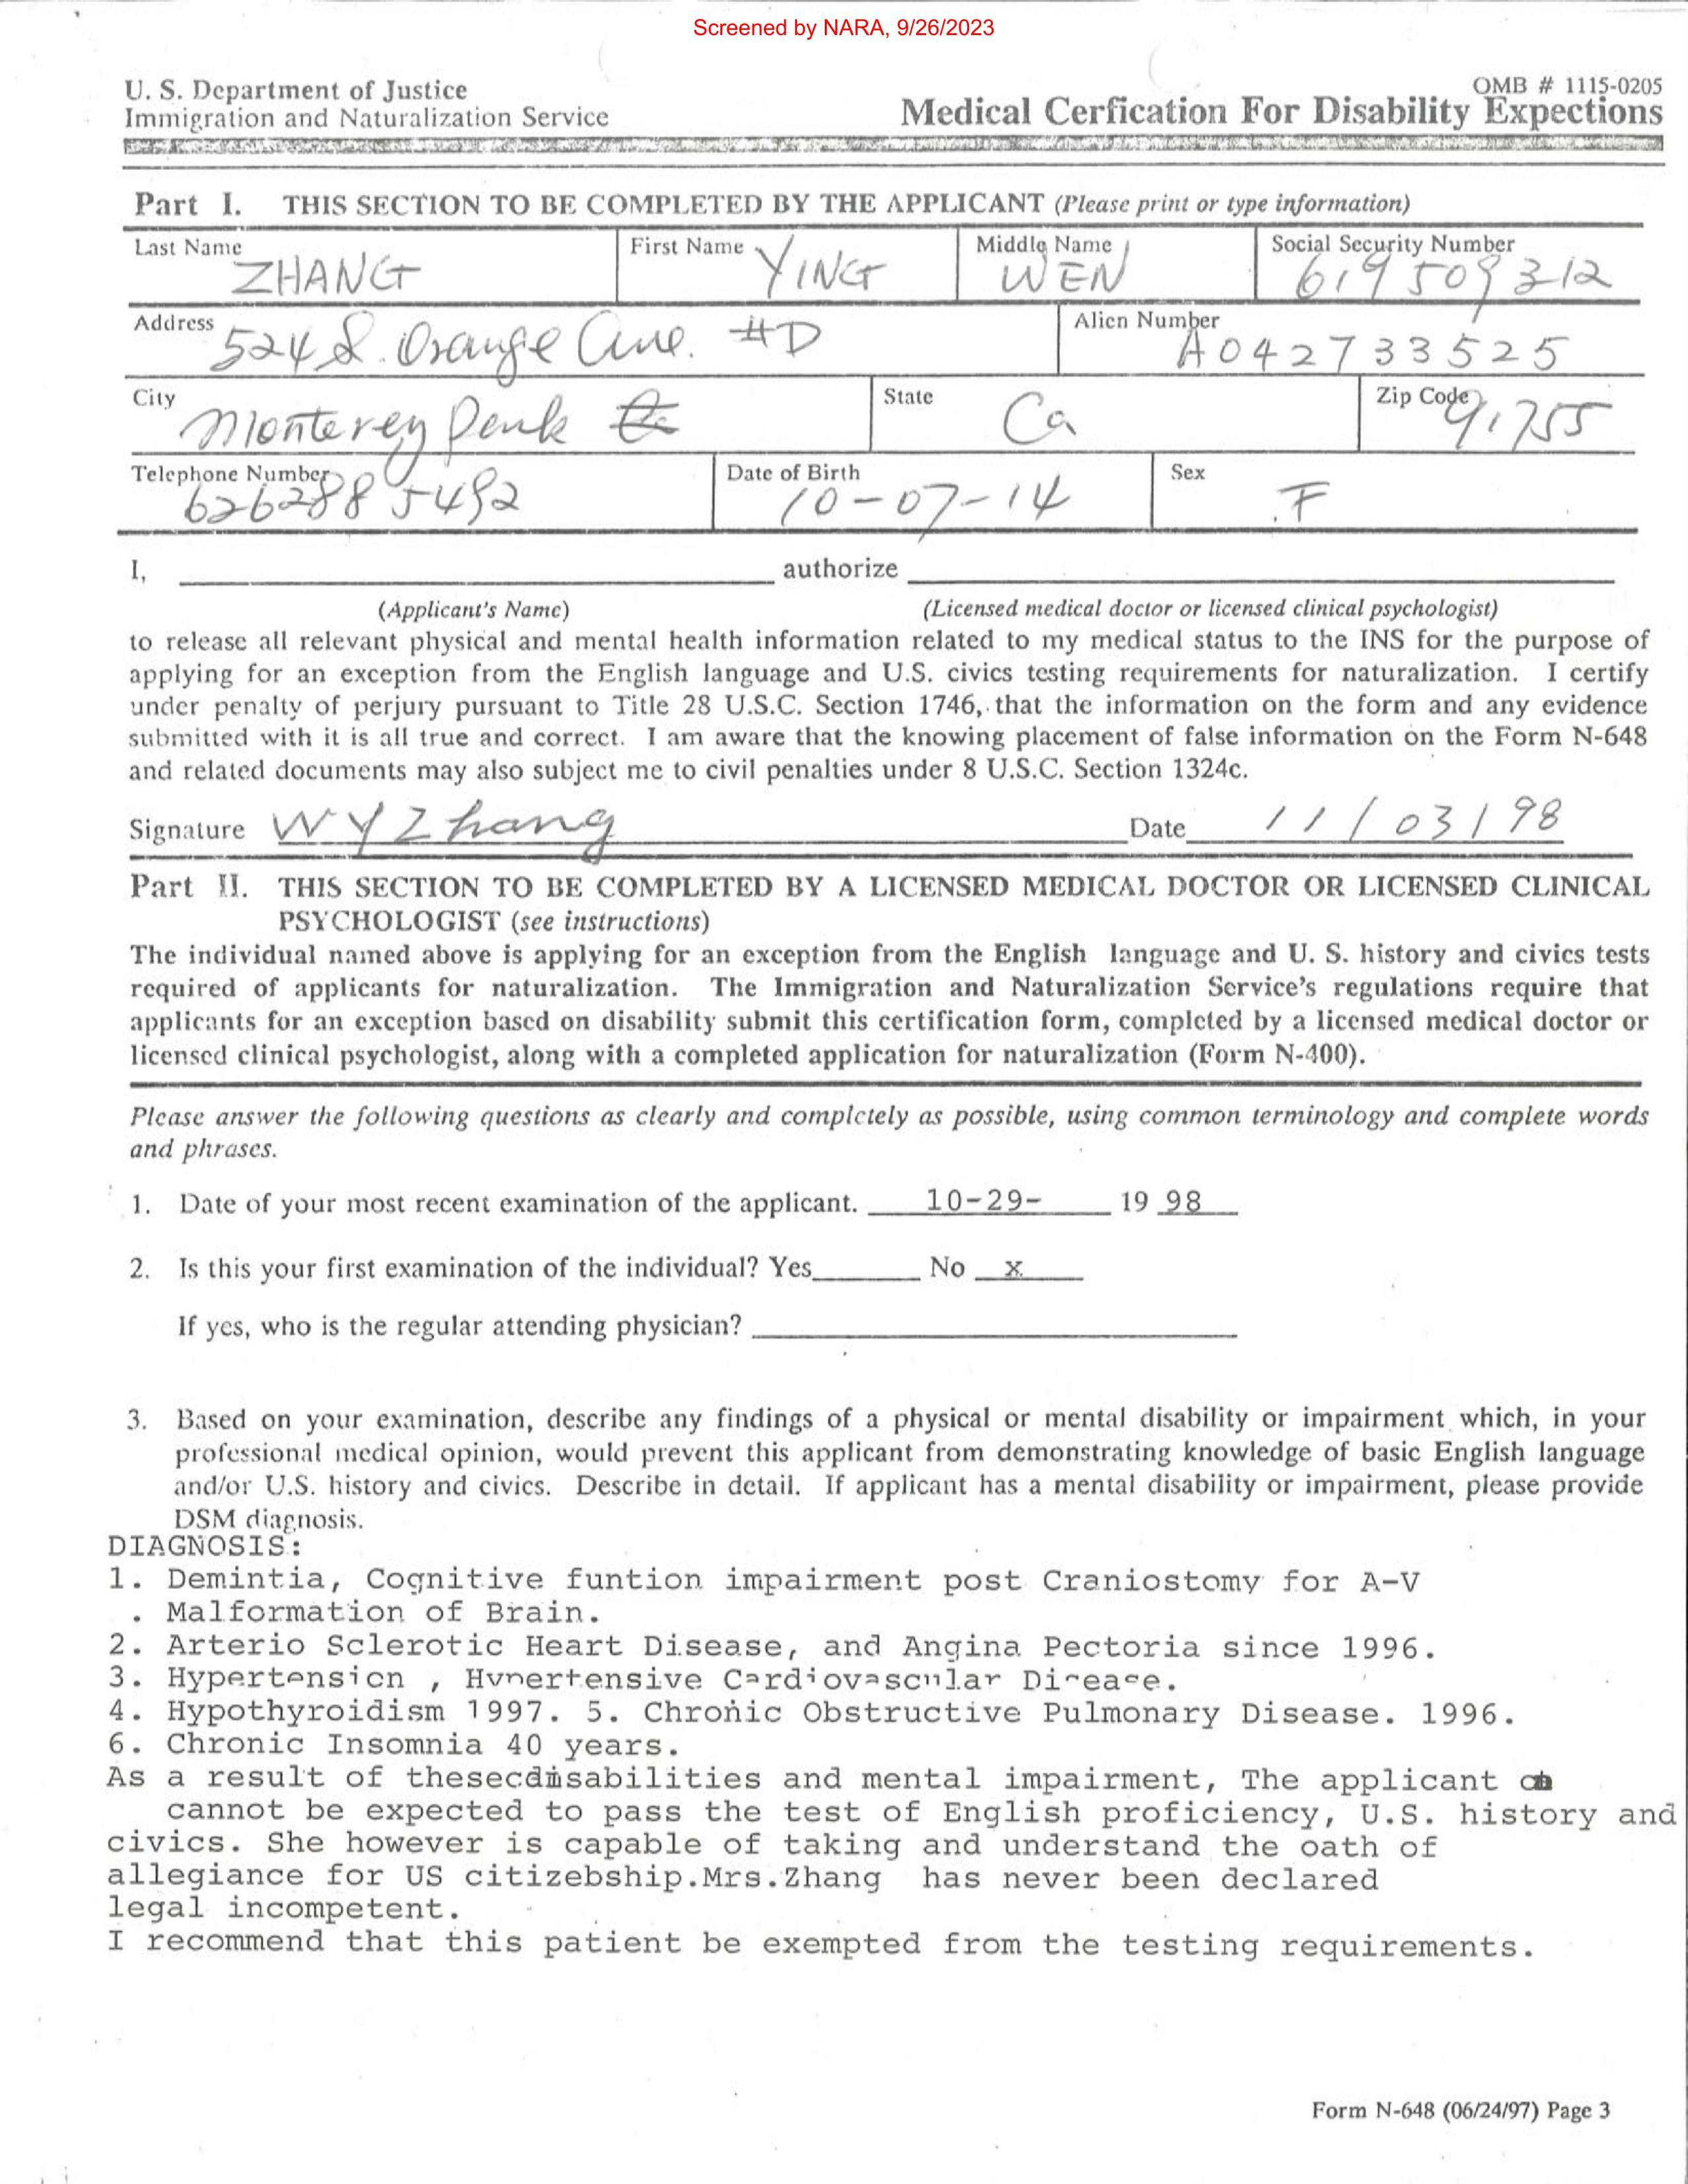 Screened by NARA, 9/26/2023
U. S. Department of Justice
OMB # 1115-0205
Immigration and Naturalization Service
Medical Cerfication For Disability Expections
Part I. THIS SECTION TO BE COMPLETED BY THE APPLICANT (Please print or type information)
Last Name ZHANG First Name YING Middle Name WEN Social Security Number 619509312
Address 524 S. Orange Ave. #D Alien Number A042733525
City Monterey Park State Ca Zip Code 91755
Telephone Number 6262885492 Date of Birth 10-07-14 Sex F
I, authorize
(Applicant's Name) (Licensed medical doctor or licensed clinical psychologist)
to release all relevant physical and mental health information related to my medical status to the INS for the purpose of
applying for an exception from the English language and U.S. civics testing requirements for naturalization. I certify
under penalty of perjury pursuant to Title 28 U.S.C. Section 1746, that the information on the form and any evidence
submitted with it is all true and correct. I am aware that the knowing placement of false information on the Form N-648
and related documents may also subject me to civil penalties under 8 U.S.C. Section 1324c.
Signature W Y Zhang Date 11/03/98
Part II. THIS SECTION TO BE COMPLETED BY A LICENSED MEDICAL DOCTOR OR LICENSED CLINICAL
PSYCHOLOGIST (see instructions)
The individual named above is applying for an exception from the English language and U. S. history and civics tests
required of applicants for naturalization. The Immigration and Naturalization Service's regulations require that
applicants for an exception based on disability submit this certification form, completed by a licensed medical doctor or
licensed clinical psychologist, along with a completed application for naturalization (Form N-400).
Please answer the following questions as clearly and completely as possible, using common terminology and complete words
and phrases.
1. Date of your most recent examination of the applicant. 10-29- 19 98
2. Is this your first examination of the individual? Yes No x
If yes, who is the regular attending physician?
3. Based on your examination, describe any findings of a physical or mental disability or impairment which, in your
professional medical opinion, would prevent this applicant from demonstrating knowledge of basic English language
and/or U.S. history and civics. Describe in detail. If applicant has a mental disability or impairment, please provide
DSM diagnosis.
DIAGNOSIS:
1. Demintia, Cognitive funtion impairment post Craniostomy for A-V
. Malformation of Brain.
2. Arterio Sclerotic Heart Disease, and Angina Pectoria since 1996.
3. Hypertension , Hypertensive Cardiovascular Disease.
4. Hypothyroidism 1997. 5. Chronic Obstructive Pulmonary Disease. 1996.
6. Chronic Insomnia 40 years.
As a result of these disabilities and mental impairment, The applicant
cannot be expected to pass the test of English proficiency, U.S. history and
civics. She however is capable of taking and understand the oath of
allegiance for US citizebship.Mrs.Zhang has never been declared
legal incompetent.
I recommend that this patient be exempted from the testing requirements.
Form N-648 (06/24/97) Page 3